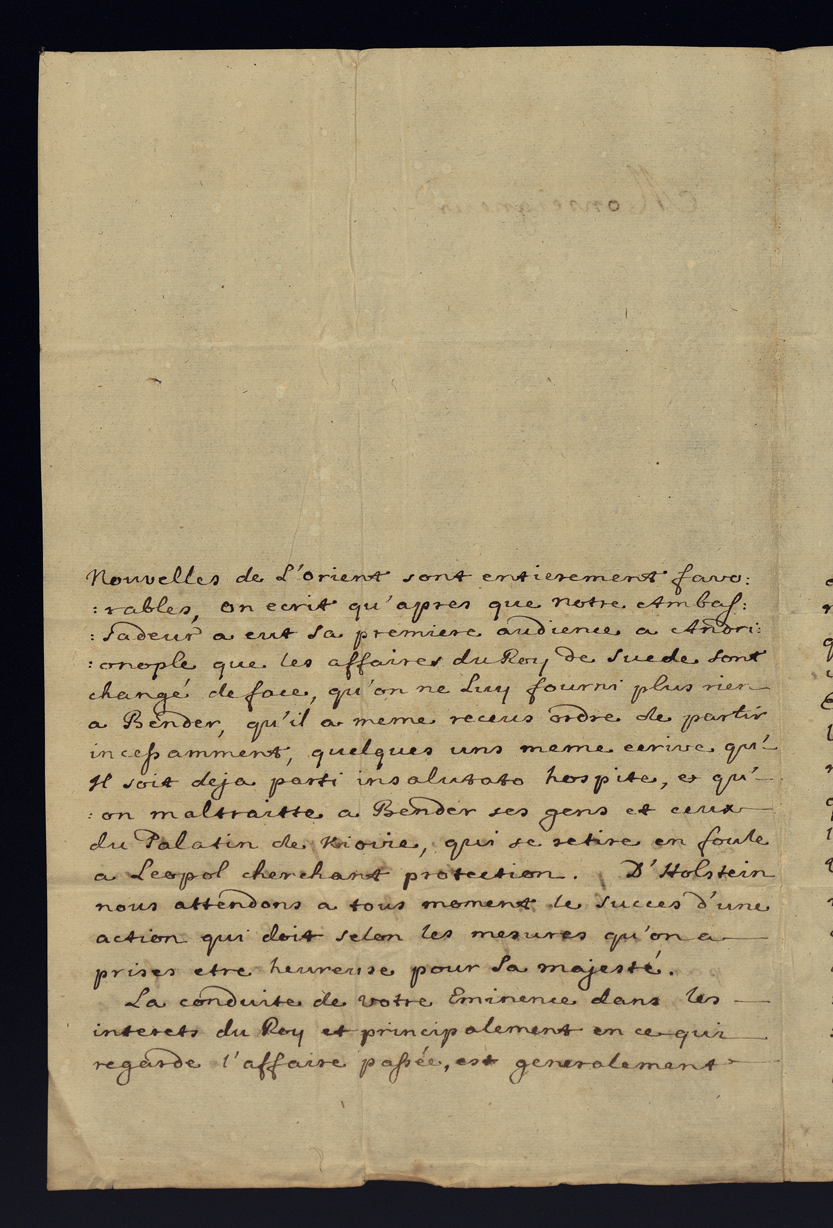 Nouvelles de L'orient sont entierement favo:
:rables, on ecrit qu'apres que notre Ambas:
:sadeur a eut sa premiere audience a Andri:
:onople que les affaires du Roy de Suede sont
changé de face, qu'on ne Luy fourni plus rien
a Bender, qu'il a meme receus ordre de partir
incessamment, quelques uns meme ecrive qu'
Il soit deja parti insalutato hospite, et qu'
:on maltraitte a Bender ses gens et ceux
du Palatin de Kiovie, qui se retire en foule
a Leopol cherchant protection. D'Holstein
nous attendons a tous moment le succes d'une
action qui doit selon les mesures qu'on a
prises etre heureuse pour Sa majesté.
La conduite de votre Eminence dans les
interets du Roy et principalement en ce qui
regarde l'affaire passée, est generalement